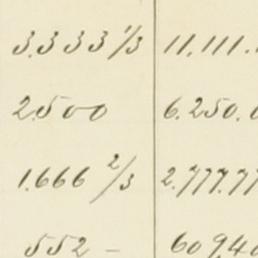 3.333 1/3 11.111.
2.500 6.250.0
1.666 2/3 2.777.77
552 — 609.40